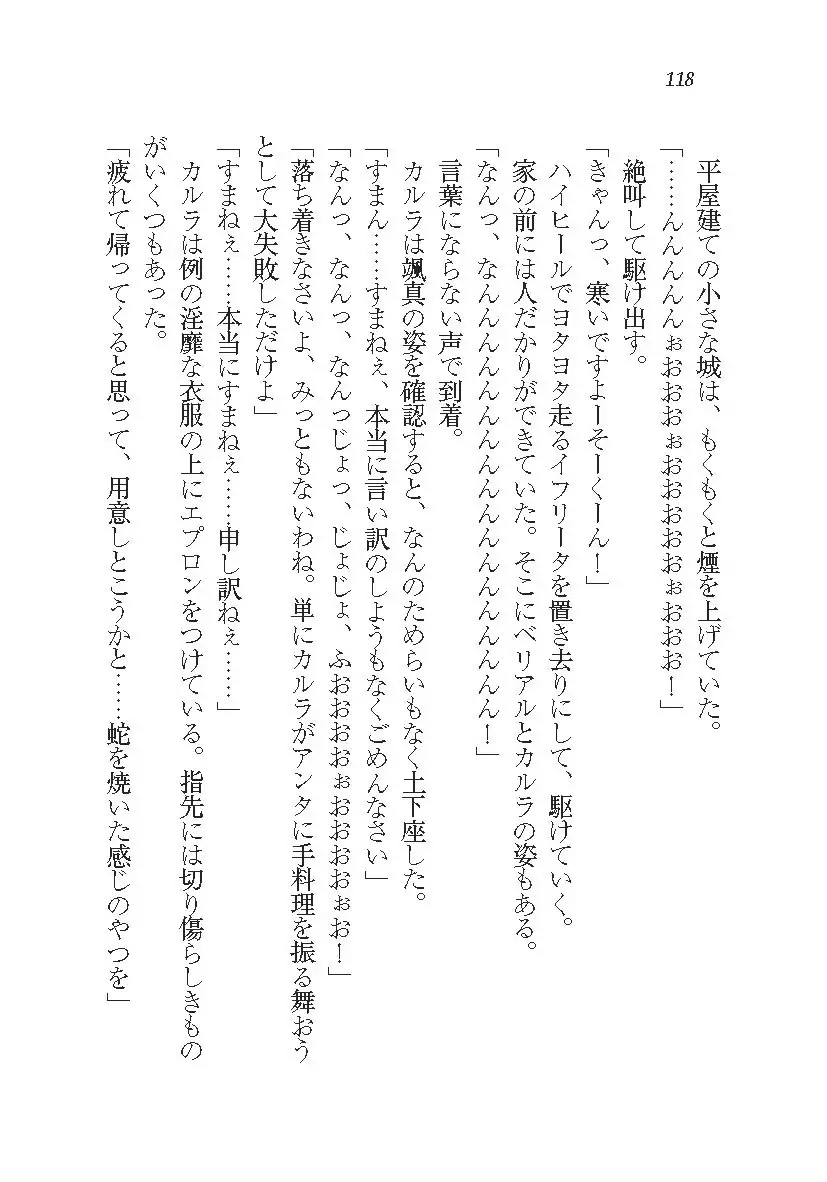 118
平屋建ての小さな城は、もくもくと煙を上げていた。
「……んんんんんぉおおおぉおおおおおぉおおお！」
絶叫して駆け出す。
「きゃんっ、寒いですよーそーくーん！」
ハイヒールでヨタヨタ走るイフリータを置き去りにして、駆けていく。
家の前には人だかりができていた。そこにベリアルとカルラの姿もある。
「なんっ、なんんんんんんんんんんんんんんんんんん！」
言葉にならない声で到着。
カルラは颯真の姿を確認すると、なんのためらいもなく土下座した。
「すまん……すまねぇ、本当に言い訳のしようもなくごめんなさい」
「なんっ、なんっ、なんっじょっ、じょじょ、ふおおおおぉおおおおぉお！」
「落ち着きなさいよ、みっともないわね。単にカルラがアンタに手料理を振る舞おう
として大失敗しただけよ」
「すまねぇ……本当にすまねぇ……申し訳ねぇ……」
カルラは例の淫靡な衣服の上にエプロンをつけている。指先には切り傷らしきもの
がいくつもあった。
「疲れて帰ってくると思って、用意しとこうかと……蛇を焼いた感じのやつを」